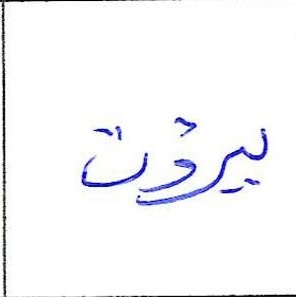 بيروت